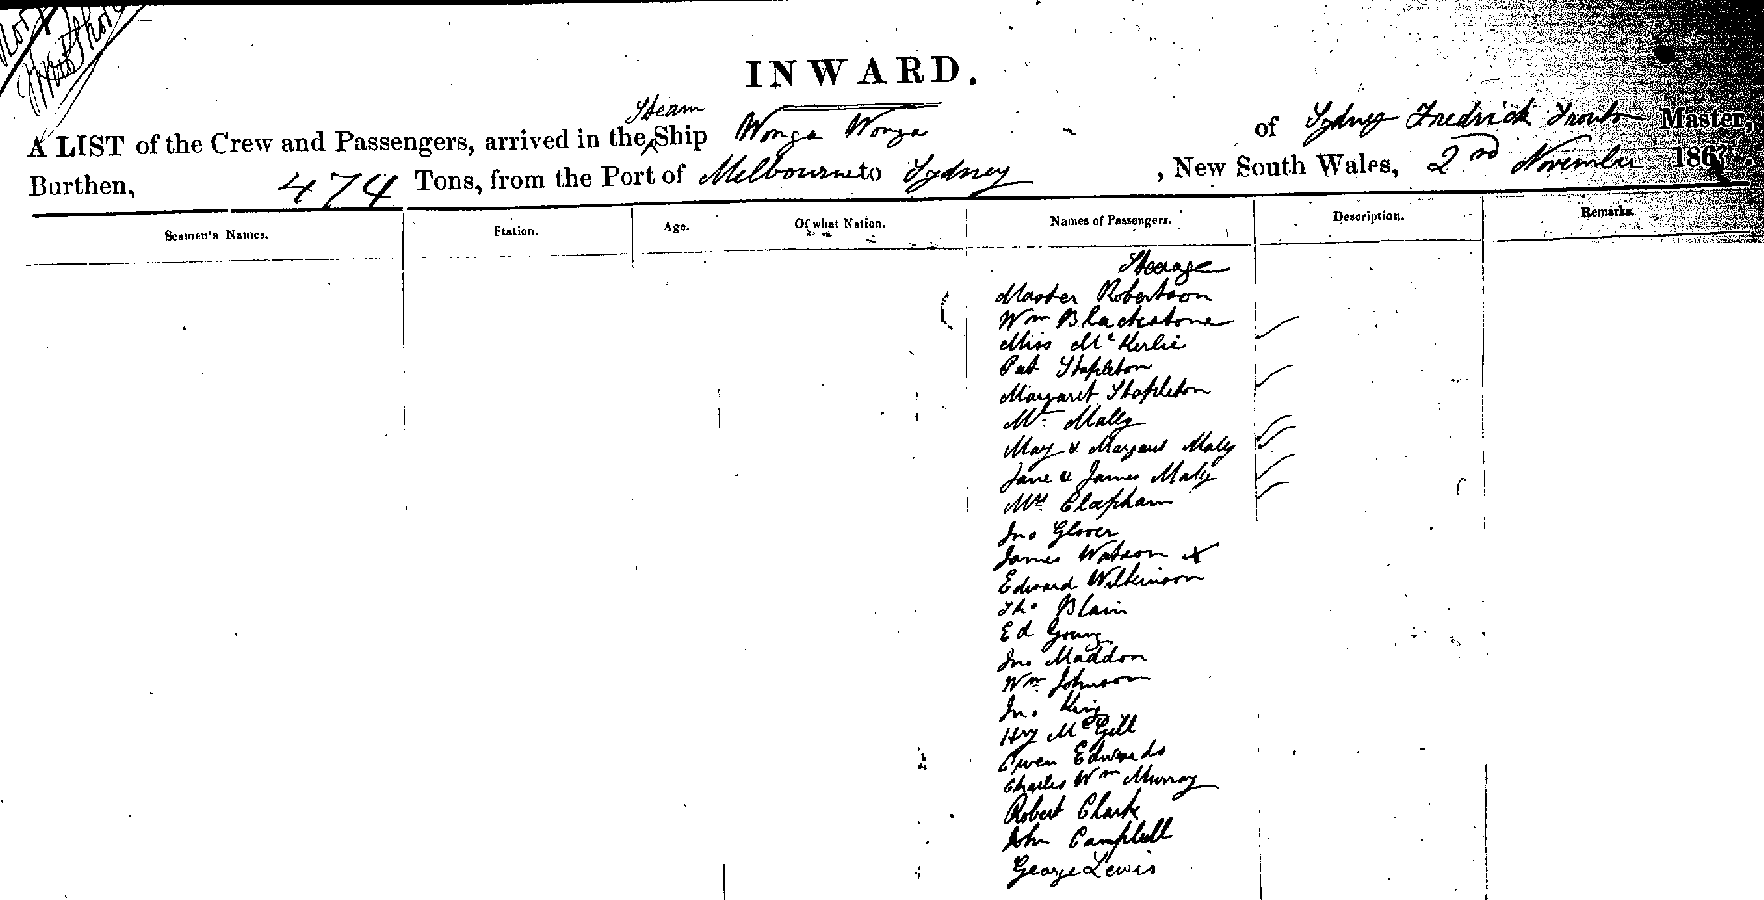 INWARD.
Steam
A LIST of the Crew and Passengers, arrived in the Ship Wonga Wonga of Sydney Fredrick Trouton Master,
Burthen, 474 Tons, from the Port of Melbourne to Sydney , New South Wales, 2nd November 186
Seamen's Names. Station. Age. Of what Nation. Names of Passengers. Description. Remarks.
Steerage
Master Robertson
Wm Blackstone
Miss McKerlie
Pat Stapleton
Margaret Stapleton
Mr Mally
May & Margaret Mally
Jane & James Mally
Mrs Clapham
Jno Glover
James Watson x
Edward Wilkinson
Tho Blain
Ed Young
Jno Maddon
Wm Johnson
Jno. King
Hry McGill
Owen Edwards
Charles Wm Murray
Robert Clark
John Campbell
George Lewis